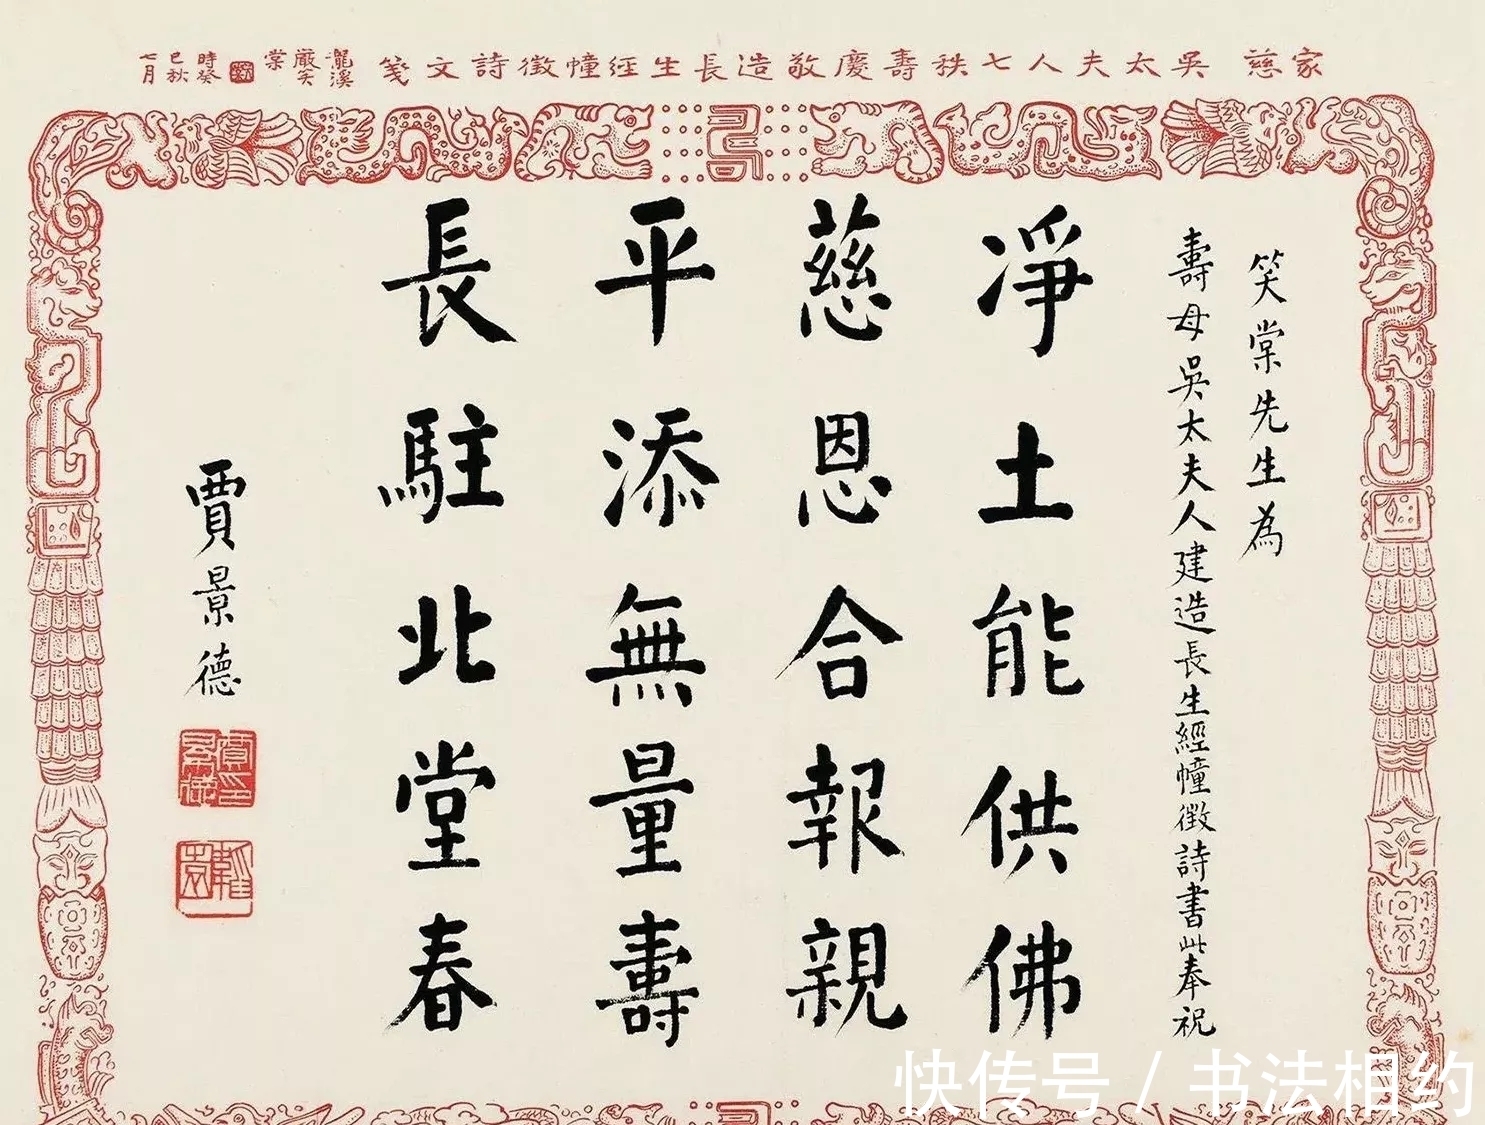 家慈吳太夫人七秩壽慶敬造長生經幢徵詩文箋
瀧溪
嚴笑
棠
時癸
巳秋
七月
笑棠先生為
壽母吳太夫人建造長生經幢徵詩書此奉祝
凈土能供佛
慈恩合報親
平添無量壽
長駐北堂春
賈景德
快传号 / 书法相约